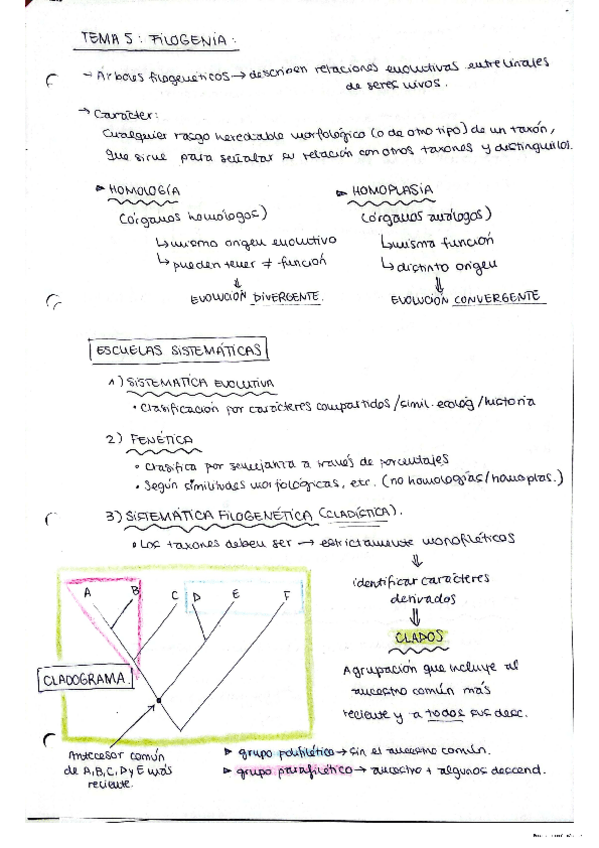 TEMA 5: FILOGENIA:
→ Árboles filogenéticos → describen relaciones evolutivas entre linajes
de seres vivos.
→ Carácter:
Cualquier rasgo heredable morfológico (o de otro tipo) de un taxón,
que sirve para señalar su relación con otros taxones y distinguirlos.
▸ HOMOLOGÍA
(órganos homólogos)
↳ mismo origen evolutivo
↳ pueden tener ≠ función
⇓
EVOLUCIÓN DIVERGENTE.
▸ HOMOPLASIA
(órganos análogos)
↳ misma función
↳ distinto origen
⇓
EVOLUCIÓN CONVERGENTE
ESCUELAS SISTEMÁTICAS
1) SISTEMÁTICA EVOLUTIVA
• Clasificación por caracteres compartidos/simil. ecológ/historia
2) FENÉTICA
• Clasifica por semejanza a través de porcentajes
• Según similitudes morfológicas, etc. (no homologías/homoplas.)
3) SISTEMÁTICA FILOGENÉTICA (CLADÍSTICA).
• Los taxones deben ser → estrictamente monofiléticos
⇓
identificar caracteres
derivados
⇓
CLADOS
Agrupación que incluye al
ancestro común más
reciente y a todos sus desc.
A B C D E F
CLADOGRAMA.
Antecesor común
de A, B, C, D y E más
reciente.
▸ grupo polifilético → sin el ancestro común.
▸ grupo parafilético → ancestro + algunos descend.